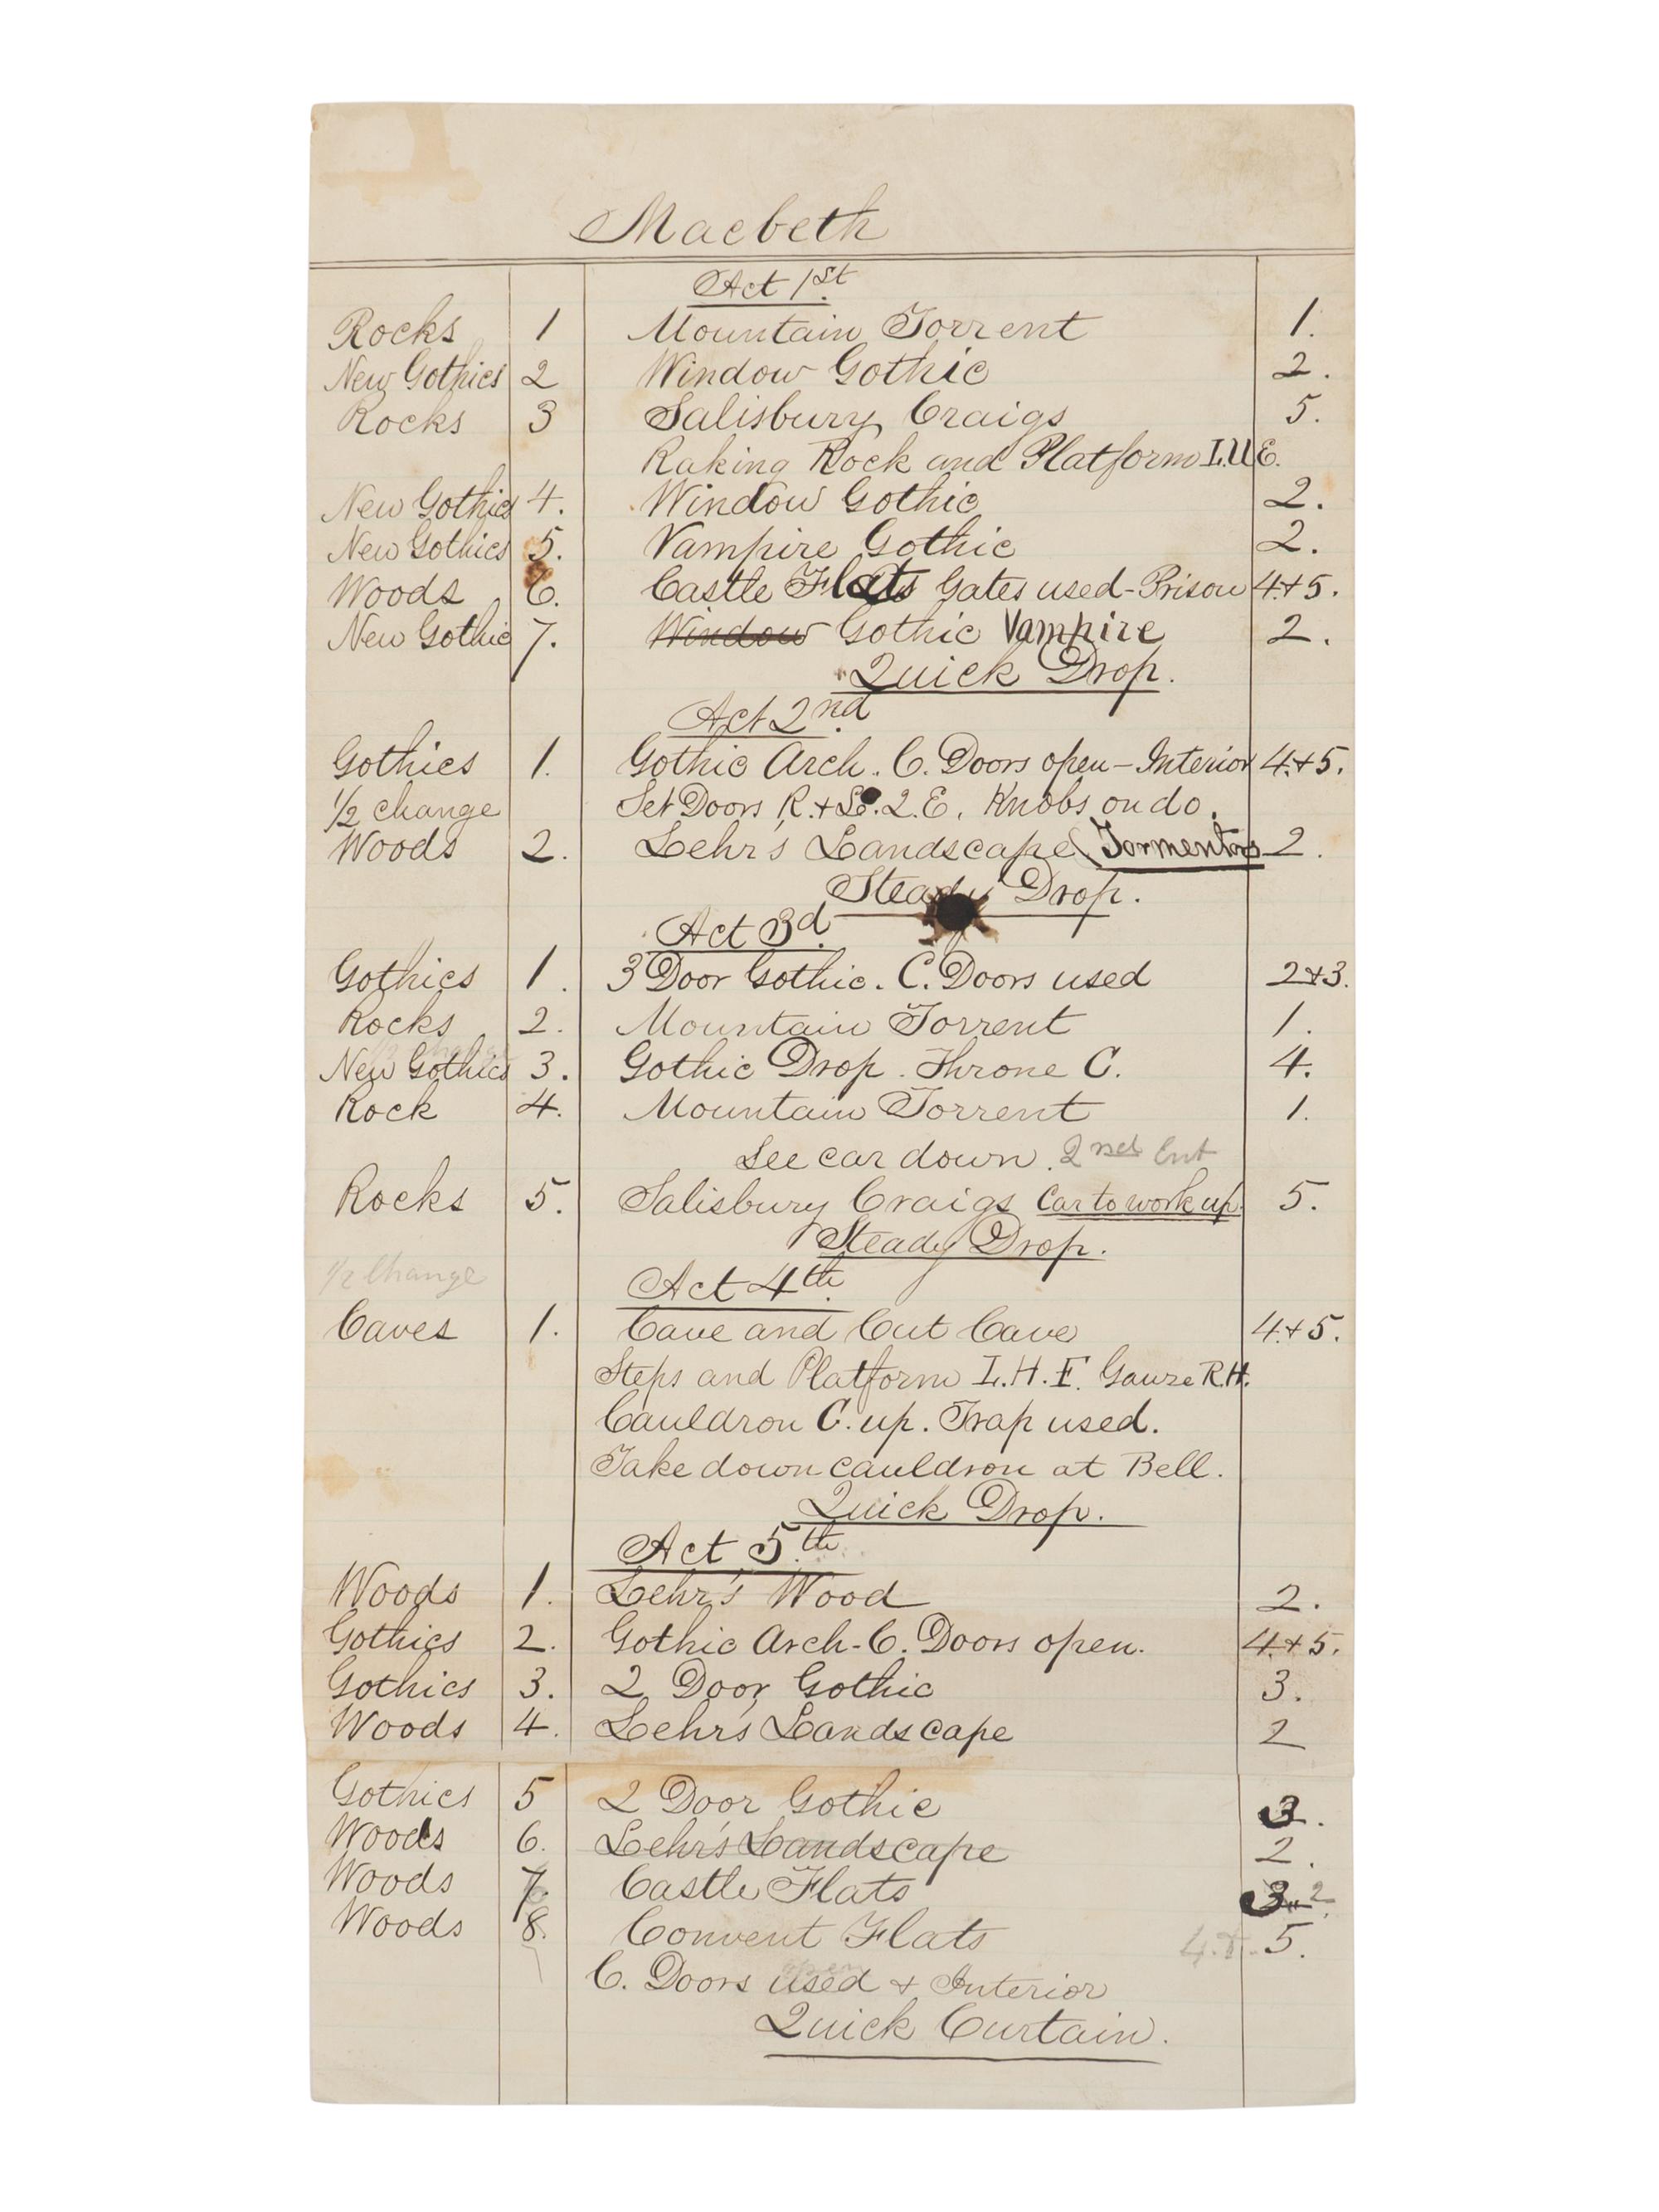 Macbeth
Act 1st
Rocks 1 Mountain Torrent 1.
New Gothics 2 Window Gothic 2.
Rocks 3 Salisbury Craigs 5.
Raking Rock and Platform L.U.E.
New Gothics 4. Window Gothic 2.
New Gothics 5. Vampire Gothic 2.
Woods 6. Castle Flats Gates used - Prison 4.+5.
New Gothic 7. Window Gothic Vampire 2.
Quick Drop.
Act 2nd
Gothics 1. Gothic Arch. C. Doors open - Interior 4.+5.
1/2 change Set Doors R.+L. 2.E. Knobs on do.
Woods 2. Lehr's Landscape (Tormentors 2.
Steady Drop.
Act 3d.
Gothics 1. 3 Door Gothic. C. Doors used 2+3.
Rocks 2. Mountain Torrent 1.
New Gothics 3. Gothic Drop. Throne C. 4.
Rock 4. Mountain Torrent 1.
See car down. 2nd Ent
Rocks 5. Salisbury Craigs Car to work up. 5.
Steady Drop.
1/2 Change
Act 4th.
Caves 1. Cave and Cut Cave 4.+5.
Steps and Platform L.H.E. Gauze R.H.
Cauldron C. up. Trap used.
Take down cauldron at Bell.
Quick Drop.
Act 5.th
Woods 1. Lehr's Wood 2.
Gothics 2. Gothic Arch - C. Doors open. 4.+5.
Gothics 3. 2 Door Gothic 3.
Woods 4. Lehr's Landscape 2
Gothics 5 2 Door Gothic 3.
Woods 6. Lehr's Landscape 2.
Woods 7. Castle Flats 3. 2
Woods 8. Convent Flats 5.
C. Doors used + Interior
Quick Curtain.